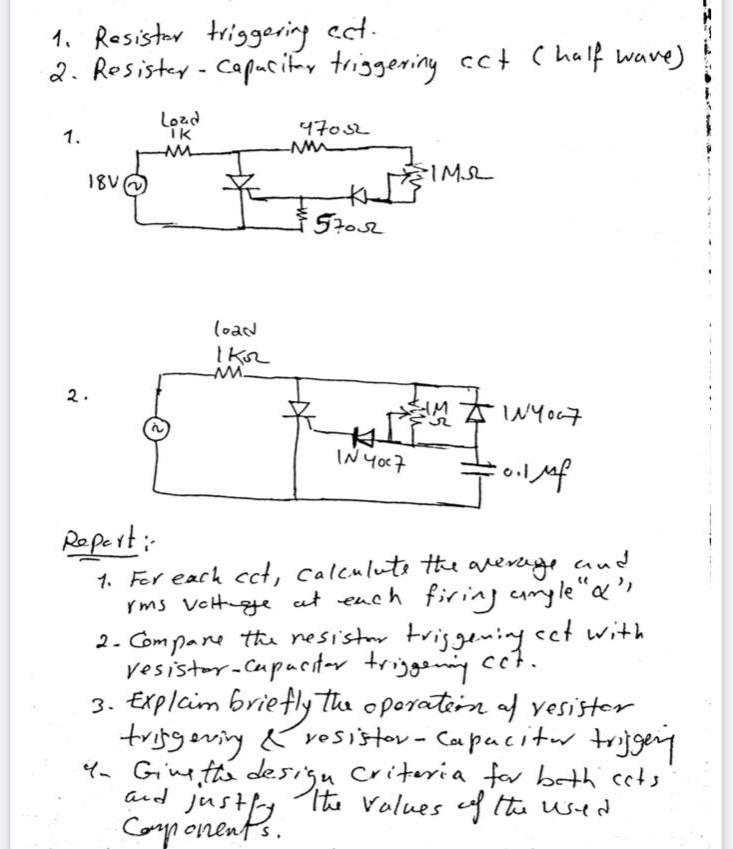 1. Resistor triggering cct.
2. Resister - Capacitor triggering cct (half wave)
1.
Load
1K
470Ω
18V
1MΩ
570Ω
load
1KΩ
2.
1M
Ω
1N4007
1N4007
0.1 Mf
Report :-
1. For each cct, calculate the average and
rms voltage at each firing angle "α",
2- Compare the resistor triggering cct with
resistor-capacitor triggering cct.
3. Explain briefly the operation of resistor
triggering & resistor - capacitor triggering
4- Give the design criteria for both ccts
and justify the values of the used
Components.